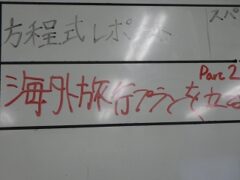 方程式レポート
スパ
Part 2
海外旅行プランを立